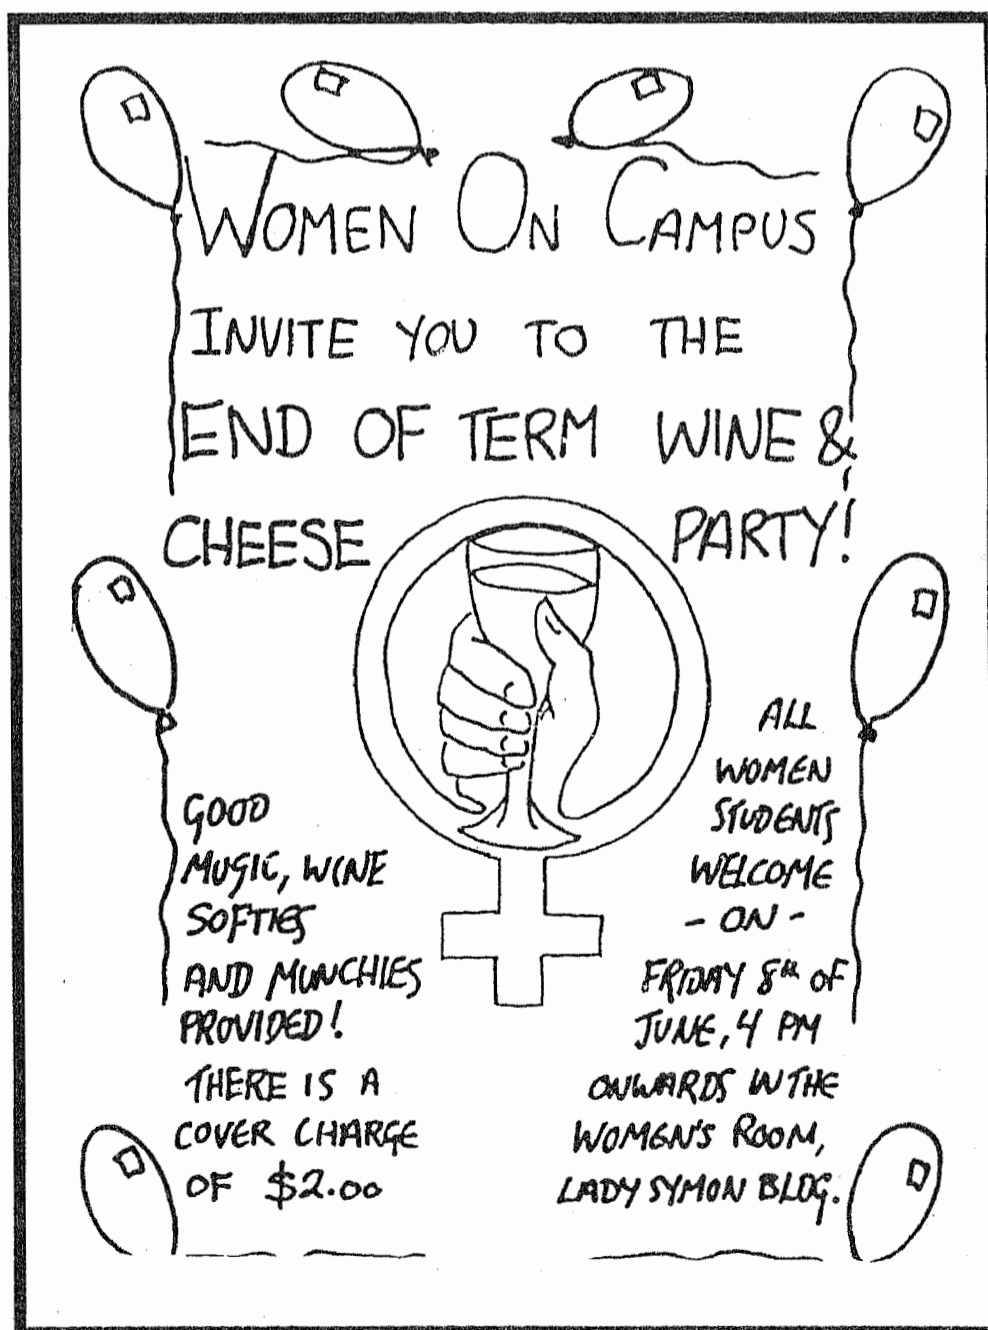 WOMEN ON CAMPUS
INVITE YOU TO THE
END OF TERM WINE &
CHEESE PARTY!
GOOD
MUSIC, WINE
SOFTIES
AND MUNCHIES
PROVIDED!
THERE IS A
COVER CHARGE
OF $2.00
ALL
WOMEN
STUDENTS
WELCOME
- ON -
FRIDAY 8th OF
JUNE, 4 PM
ONWARDS IN THE
WOMEN'S ROOM,
LADY SYMON BLDG.